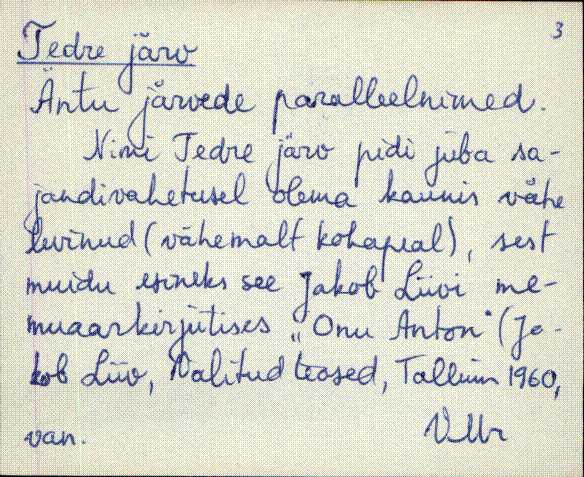 3
Tedre järv
Äntu järvede paralleelnimed.
Nimi Tedre järv pidi juba sa-
jandivahetusel olema kaunis vähe
levinud (vähemalt kohapeal), sest
muidu esineks see Jakob Liivi me-
muaarkirjutises „Onu Anton" (Ja-
kob Liiv, Valitud teosed, Tallinn 1960,
van.